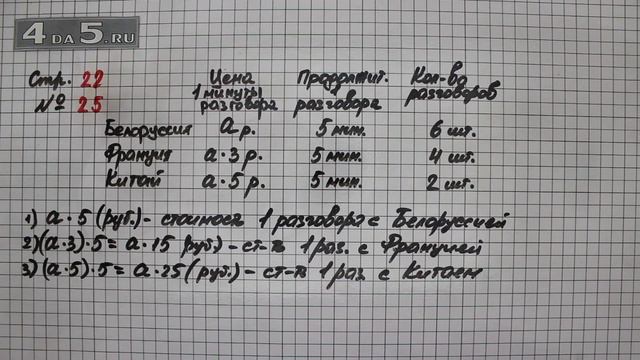 4DA5.RU
Стр. 22
№ 25
Цена 1 минуты разговора
Продолжит. разговора
Кол-во разговоров
Белоруссия а р. 5 мин. 6 шт.
Франция а·3 р. 5 мин. 4 шт.
Китай а·5 р. 5 мин. 2 шт.
1) а·5 (руб.) - стоимост 1 разговора с Белоруссией
2) (а·3)·5 = а·15 руб.) - ст-ть 1 раз. с Францией
3) (а·5)·5 = а·25 (руб.) - ст-ть 1 раз. с Китаем